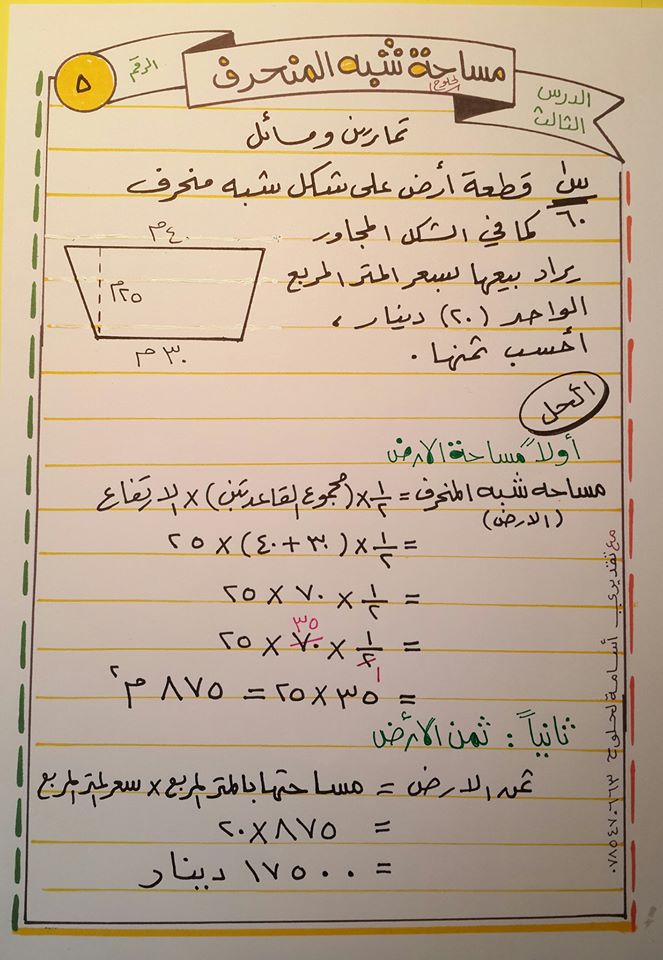 الرقم
٥
مساحة شبه المنحرف
الحلوح
الدرس
الثالث
تمارين ومسائل
س١ قطعة أرض على شكل شبه منحرف
٦٠
كما في الشكل المجاور
يراد بيعها بسعر المتر المربع
الواحد (٢٠) دينار ،
أحسب ثمنها .
٤٠م
٢٥م
٣٠م
الحل
أولاً مساحة الارض
مساحة شبه المنحرف = ١/٢ × (مجموع القاعدتين) × الارتفاع
(الارض)
= ١/٢ × (٣٠+٤٠) × ٢٥
= ١/٢ × ٧٠ × ٢٥
٣٥
= ١/٢ × ٧٠ × ٢٥
١
= ٣٥ × ٢٥ = ٨٧٥ م٢
ثانياً : ثمن الأرض
ثمن الارض = مساحتها بالمتر المربع × سعر المتر المربع
= ٨٧٥ × ٢٠
= ١٧٥٠٠ دينار
مع تقديري أسامة الحلوح ٠٧٨٥٤٧٠٦٦٣